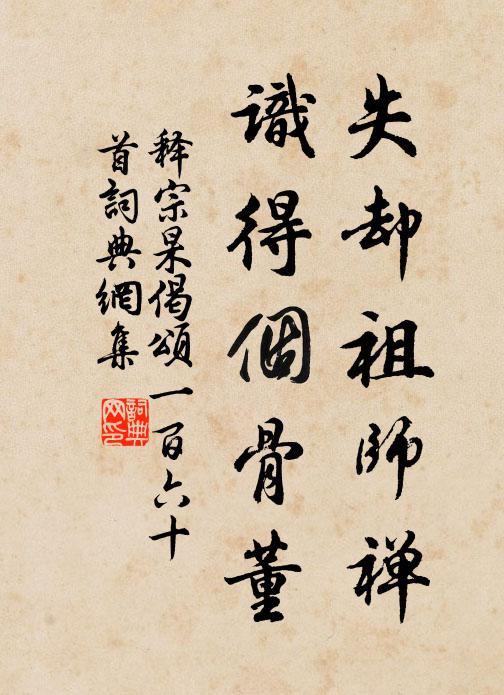 失却祖師禅
識得個骨董
释宗杲偈頌一百六十
首詞典網集
詞典网印